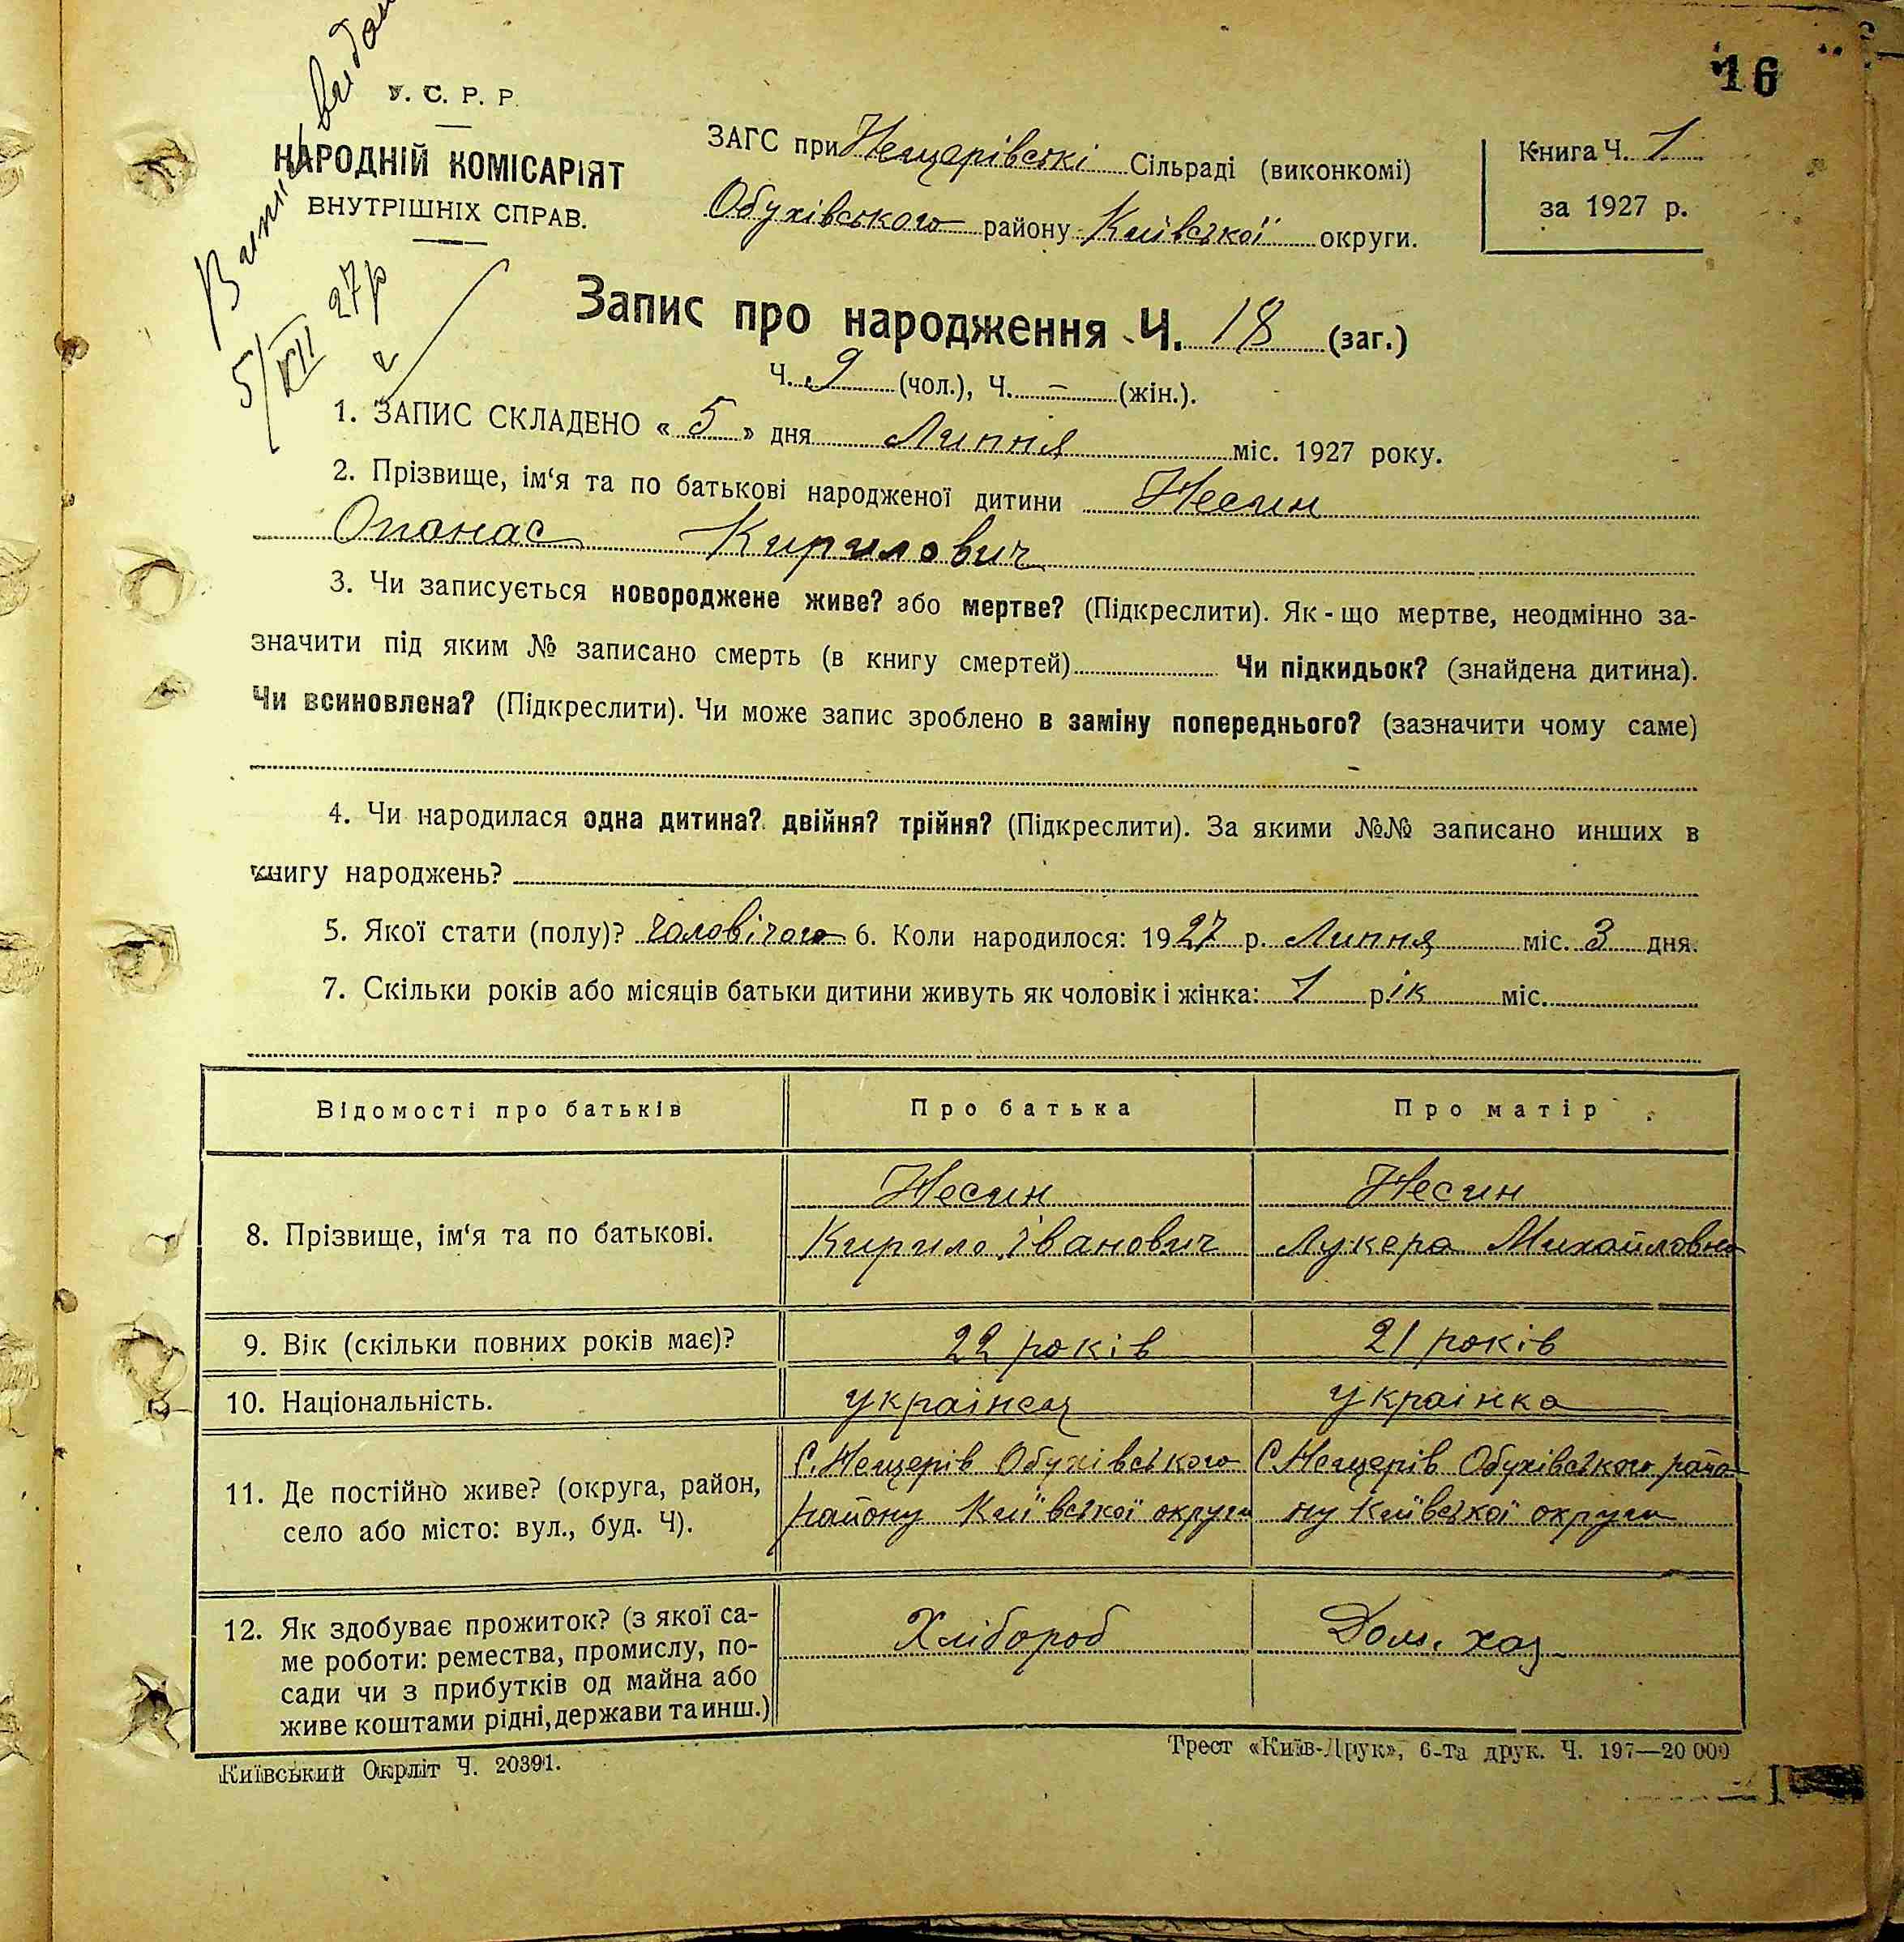 16
У. С. Р. Р.
НАРОДНІЙ КОМІСАРІЯТ
ВНУТРІШНІХ СПРАВ.
ЗАГС при Нещерівські Сільраді (виконкомі)
Обухівського району Київської округи.
Книга Ч. 1
за 1927 р.
5/VII 27р
Запис про народження Ч. 18 (заг.)
Ч. 9 (чол.), Ч. – (жін.).
1. ЗАПИС СКЛАДЕНО « 5 » дня Липня міс. 1927 року.
2. Прізвище, ім‘я та по батькові народженої дитини Несин
Опанас Кирилович
3. Чи записується новороджене живе? або мертве? (Підкреслити). Як - що мертве, неодмінно за-
значити під яким № записано смерть (в книгу смертей) Чи підкидьок? (знайдена дитина).
Чи всиновлена? (Підкреслити). Чи може запис зроблено в заміну попереднього? (зазначити чому саме)
4. Чи народилася одна дитина? двійня? трійня? (Підкреслити). За якими №№ записано инших в
книгу народжень?
5. Якої стати (полу)? чоловічого 6. Коли народилося: 1927 р. Липня міс. 3 дня.
7. Скільки років або місяців батьки дитини живуть як чоловік і жінка: 1 рік міс.
Відомості про батьків Про батька Про матір
8. Прізвище, ім‘я та по батькові. Несин Несин
Кирило Іванович Лукера Михайловна
9. Вік (скільки повних років має)? 22 років 21 років
10. Національність. українец українка
11. Де постійно живе? (округа, район, С. Нещерів Обухівського С. Нещерів Обухівського райо
село або місто: вул., буд. Ч). району Київської округи ну Київської округи
12. Як здобуває прожиток? (з якої са- Хлібороб Дом. хоз
ме роботи: ремества, промислу, по-
сади чи з прибутків од майна або
живе коштами рідні, держави та инш.)
Київський Окрліт Ч. 20391.
Трест «Київ-Друк», 6-та друк. Ч. 197—20 000